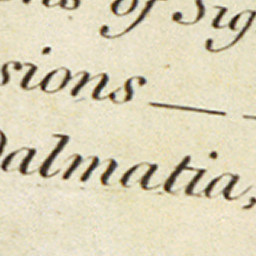 of Sig
sions —
Dalmatia,